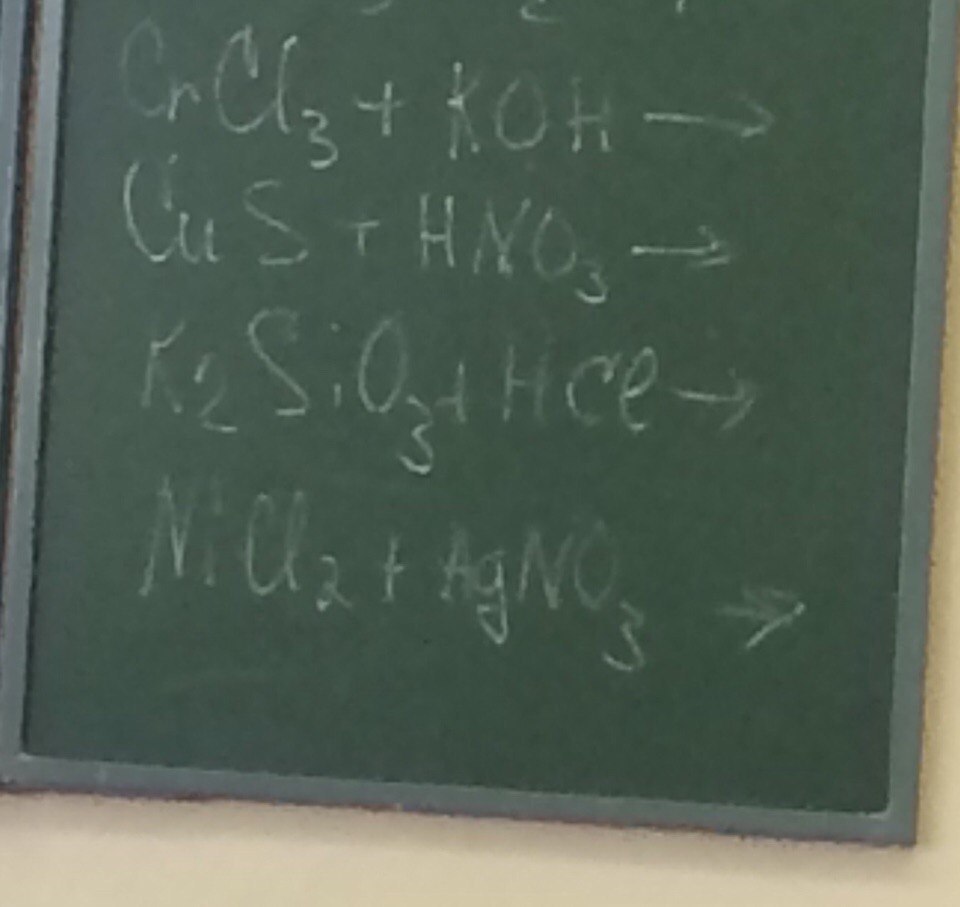 CrCl₃ + KOH →
CuS + HNO₃ →
K₂SiO₃ + HCl →
NiCl₂ + AgNO₃ →